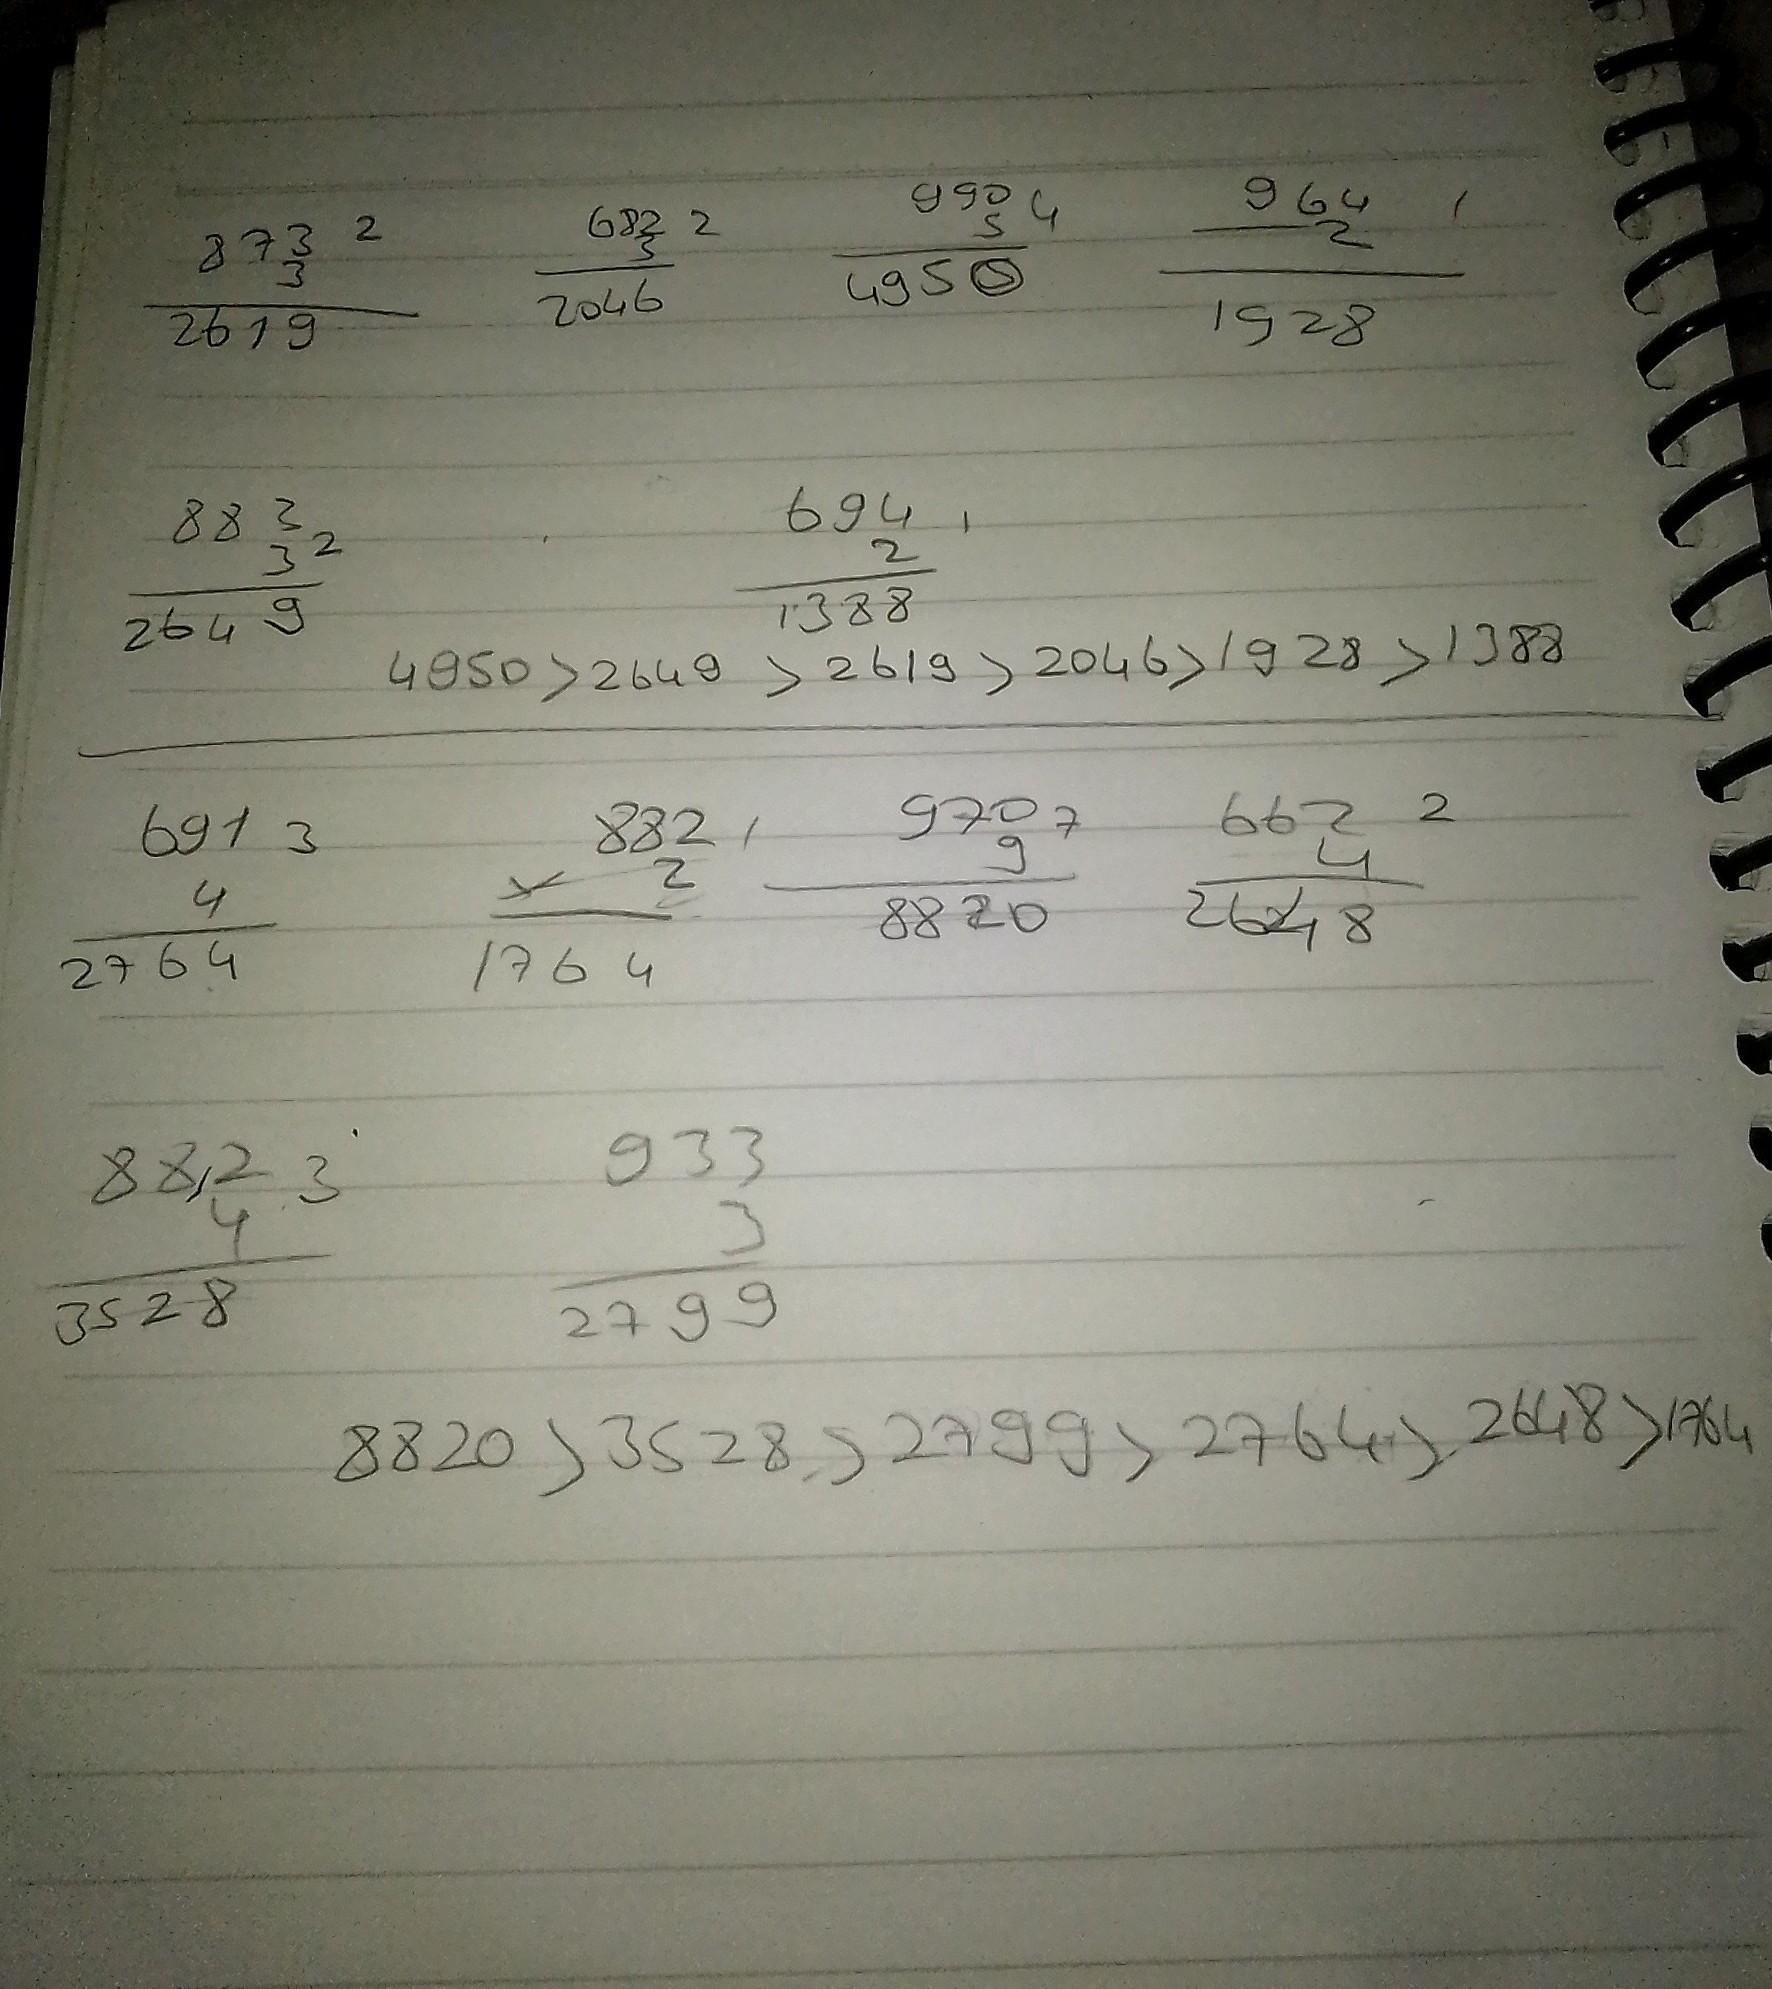 873 2 682 2 990 4 964 1
3 3 5 2
2619 2046 4950 1928
883 694 1
3 2 2
2649 1388
4950 > 2649 > 2619 > 2046 > 1928 > 1388
691 3 882 1 970 7 662 2
4 × 2 9 4
2764 1764 8820 2648
882 3 933
4 3
3528 2799
8820 > 3528 > 2799 > 2764 > 2648 > 1764